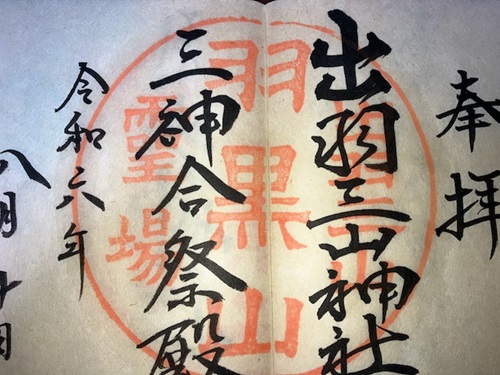 奉拝
出羽三山神社
三神合祭殿
令和六年
八月十日
羽黒山
霊場